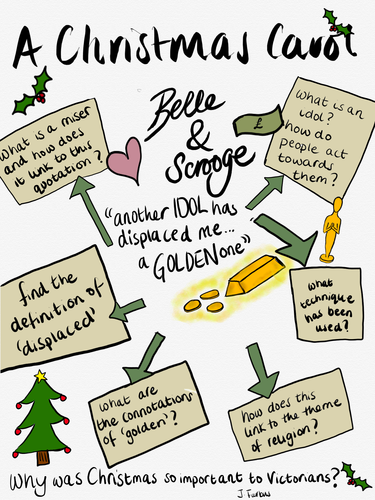 A Christmas Carol
Belle
&
Scrooge
£
What is a miser
and how does
it link to this
quotation?
What is an
idol?
how do
people act
towards
them?
"another IDOL has
displaced me...
a GOLDEN one"
find the
definition of
'displaced'
what
technique
has been
used?
what are
the connotations
of 'golden'?
how does this
link to the theme
of religion?
Why was Christmas so important to Victorians?